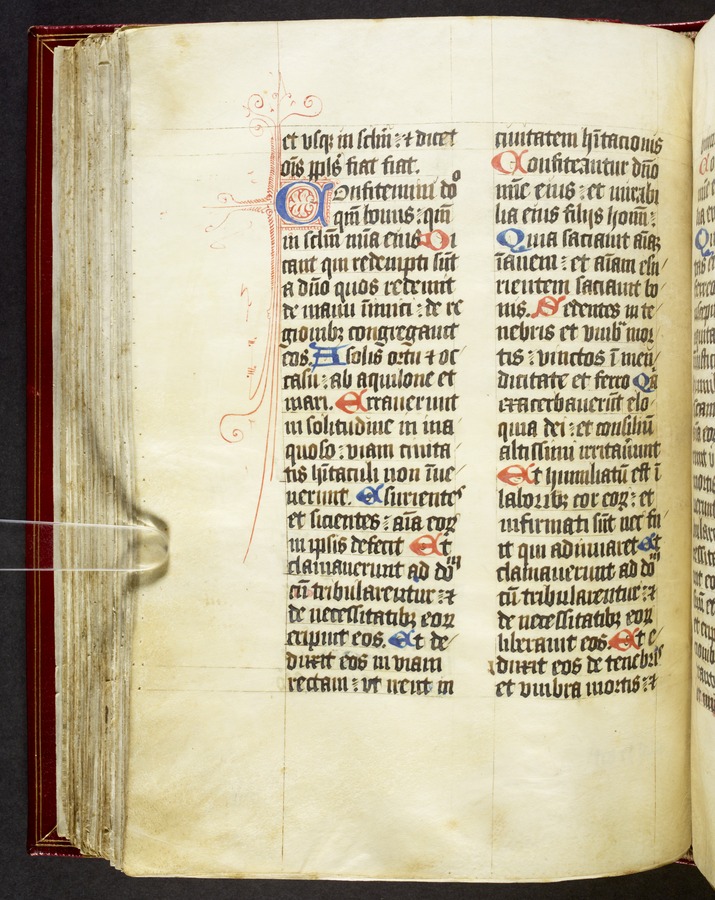 et vsqꝫ in sclm̄ : ⁊ dicet
oīs ppl̄s fiat fiat.
Confitemini dōo
qm̄ bonus : qm̄
in sclm̄ mīa eius Di
cant qui redempti sūt
a dn̄o quos redemit
de manu īimici : de re
gionibꝫ congregauit
eos. A solis ortu ⁊ oc
casu : ab aquilone et
mari. Errauerunt
in solitudine in ina
quoso : viam ciuita
tis hītaculi non īue
nerunt. Esurientes
et sicientes : aīa eoꝝ
in ipsis defecit Et
clamauerunt ad dōm
cū tribularentur : ⁊
de necessitatibꝫ eoꝝ
eripuit eos. Et de
duxit eos in viam
rectam : vt irent in
ciuitatem hītacionis
Confiteantur dn̄o
mīe eius : et mirabi
lia eius filijs homī :
Quia saciauit aīaꝫ
īanem : et aīam esu
rientem saciauit bo
nis. Sedentes in te
nebris et vmb̄ mor
tis : vinctos ī men
dicitate et ferro Qa
exacerbauerūt elo
quia dei : et consiliū
altissimi irritauūnt
Et humiliatū est ī
laboribꝫ cor eoꝝ : et
infirmati sūt nec fu
it qui adiuuaret Et
clamauerunt ad dōm
cū tribularentur : ⁊
de necessitatibꝫ eoꝝ
liberauit eos. Et e
duxit eos de tenebris
et vmbra mortis : ⁊